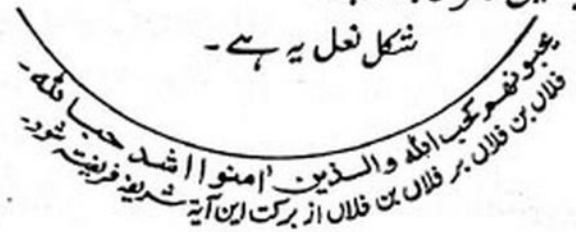 شکل نعل یہ ہے۔
یحبونھم کحب اللہ والذین امنوا اشد حبا للہ۔
فلاں بن فلاں بر فلاں بن فلاں از برکت این آیۃ شریفہ فریفتہ شود۔